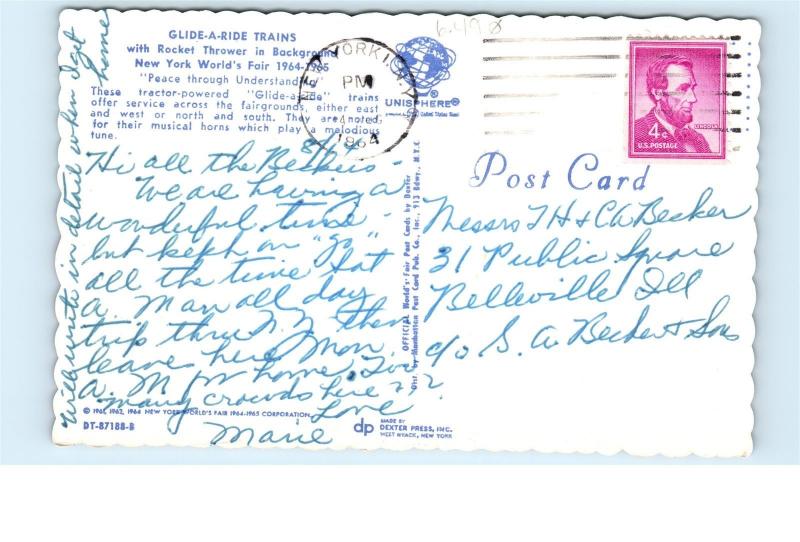 GLIDE-A-RIDE TRAINS
with Rocket Thrower in Background
New York World's Fair 1964-1965
"Peace through Understanding"
These tractor-powered "Glide-a-ride" trains
offer service across the fairgrounds, either east
and west or north and south. They are noted,
for their musical horns which play a melodious
tune.
UNISPHERE®
NEW YORK, N.Y.
PM
1964
6.498
4¢
LINCOLN
U.S. POSTAGE
Post Card
Hi all the Beckers -
We are having a
wonderful time -
but kept on "go"
all the time Sat
A. M an all day
trip thru N.Y. then
leaves here Mon
A. M for home. Too
many crowds here ???
Love
Marie
Will write in detail when I get
home
Messrs TH & CA Becker
31 Public Square
Belleville Ill
c/o S. A. Becker & Sons
OFFICIAL World's Fair Post Cards by Dexter
Dist. by Manhattan Post Card Pub. Co., Inc., 913 Bdwy., N.Y.
© 1961, 1962, 1964 NEW YORK WORLD'S FAIR 1964-1965 CORPORATION
DT-87188-B
dp
MADE BY
DEXTER PRESS, INC.
WEST NYACK, NEW YORK